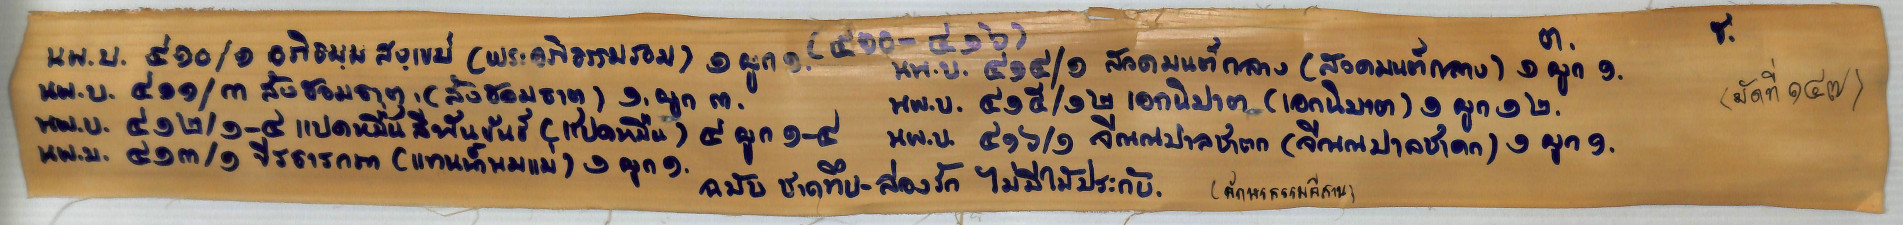 (๔๑๐-๔๑๖)
ต.
ช.
นพ.บ. ๔๑๐/๑ อภิธมฺม สงฺเขป (พระอภิธรรมรอม) ๑ ผูก ๑.
นพ.บ. ๔๑๑/๓ สังฮอมธาตุ (สังฮอมธาตุ) ๑ ผูก ๓.
นพ.บ. ๔๑๒/๑-๔ แปดหมื่นสี่พันขันธ์ (แปดหมื่น) ๔ ผูก ๑-๔
นพ.บ. ๔๑๓/๑ ขีรธารกถา (แทนน้ำนมแม่) ๑ ผูก ๑.
นพ.บ. ๔๑๔/๑ สวดมนต์กลาง (สวดมนต์กลาง) ๑ ผูก ๑.
นพ.บ. ๔๑๕/๑๒ เอกนิปาต (เอกนิบาต) ๑ ผูก ๑๒.
นพ.บ. ๔๑๖/๑ จีณณปาลชาตก (จีณณปาลชาดก) ๑ ผูก ๑.
(มัดที่ ๑๔๗)
ฉบับ ชาดทึบ-ล่องรัก ไม่มีไม้ประกับ.
(อักษรธรรมอีสาน)